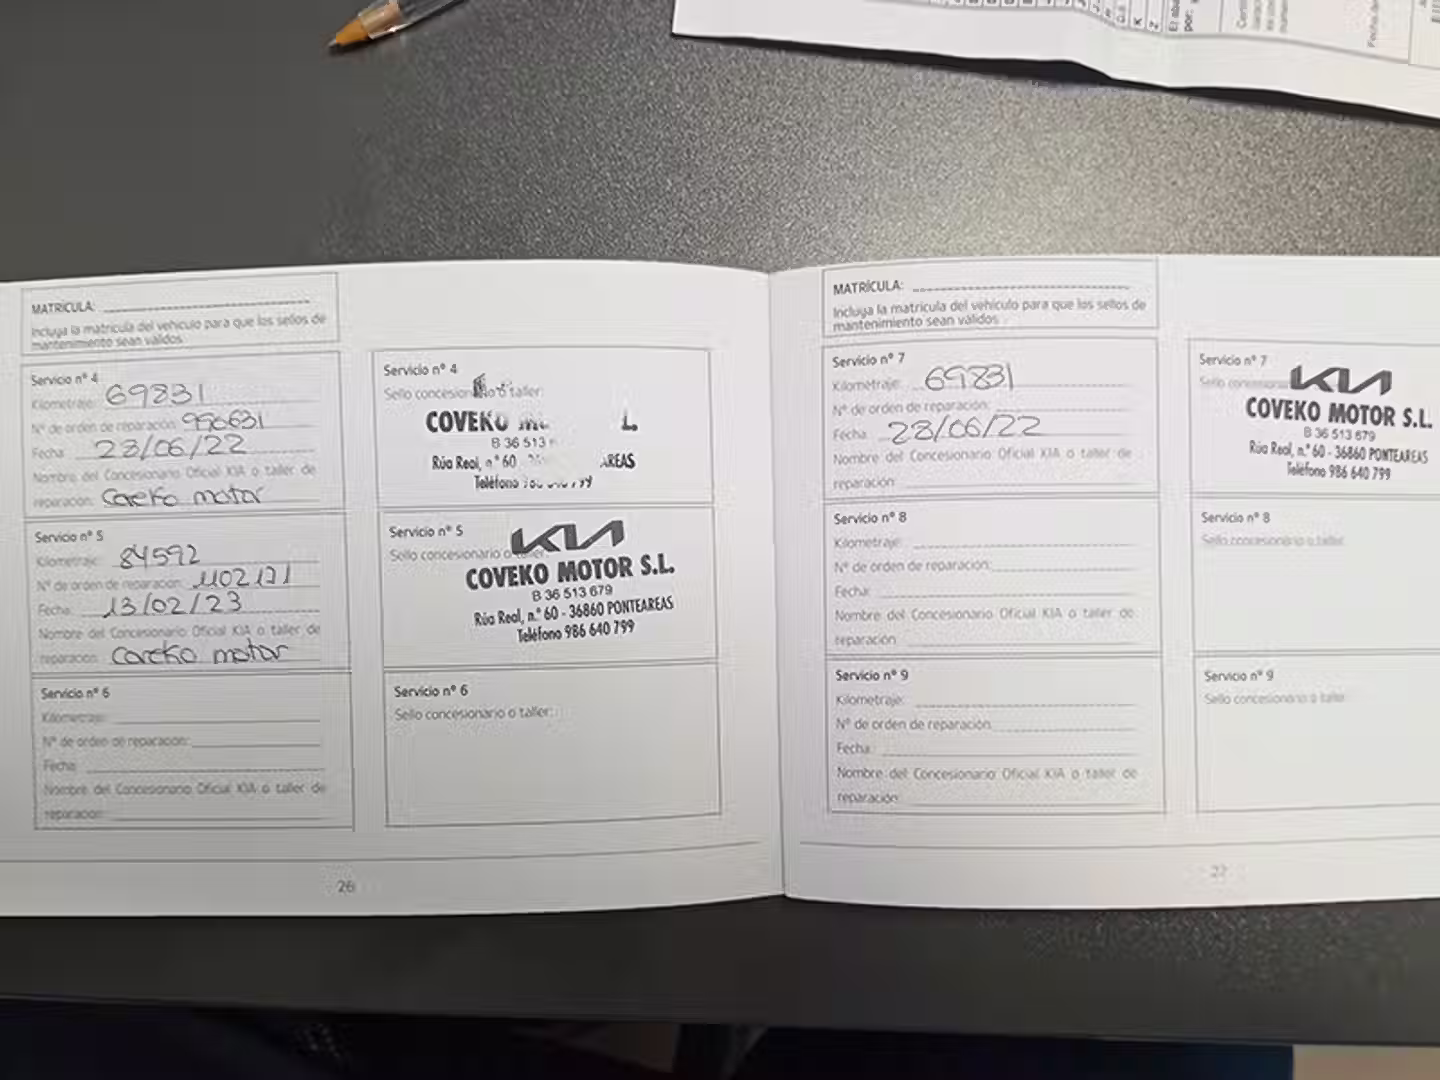 MATRÍCULA:
Incluya la matrícula del vehículo para que los sellos de
mantenimiento sean válidos
Servicio nº 4
Kilometraje: 69831
Nº de orden de reparación: 990631
Fecha: 28/06/22
Nombre del Concesionario Oficial KIA o taller de
reparación: Coveko motor
Servicio nº 4
Sello concesionario o taller:
COVEKO L.
B 36 513
Rúa Real, n.º 60 AREAS
Teléfono 799
Servicio nº 5
Kilometraje: 84592
Nº de orden de reparación: 1102121
Fecha: 13/02/23
Nombre del Concesionario Oficial KIA o taller de
reparación: Coveko motor
Servicio nº 5
Sello concesionario o taller:
KIA
COVEKO MOTOR S.L.
B 36 513 679
Rúa Real, n.º 60 - 36860 PONTEAREAS
Teléfono 986 640 799
Servicio nº 6
Kilometraje:
Nº de orden de reparación:
Fecha:
Nombre del Concesionario Oficial KIA o taller de
reparación:
Servicio nº 6
Sello concesionario o taller:
26
MATRÍCULA:
Incluya la matrícula del vehículo para que los sellos de
mantenimiento sean válidos
Servicio nº 7
Kilometraje: 69831
Nº de orden de reparación:
Fecha: 28/06/22
Nombre del Concesionario Oficial KIA o taller de
reparación:
Servicio nº 7
Sello concesionario
KIA
COVEKO MOTOR S.L.
B 36 513 679
Rúa Real, n.º 60 - 36860 PONTEAREAS
Teléfono 986 640 799
Servicio nº 8
Kilometraje:
Nº de orden de reparación:
Fecha:
Nombre del Concesionario Oficial KIA o taller de
reparación:
Servicio nº 8
Sello concesionario o taller:
Servicio nº 9
Kilometraje:
Nº de orden de reparación:
Fecha:
Nombre del Concesionario Oficial KIA o taller de
reparación:
Servicio nº 9
Sello concesionario o taller:
27